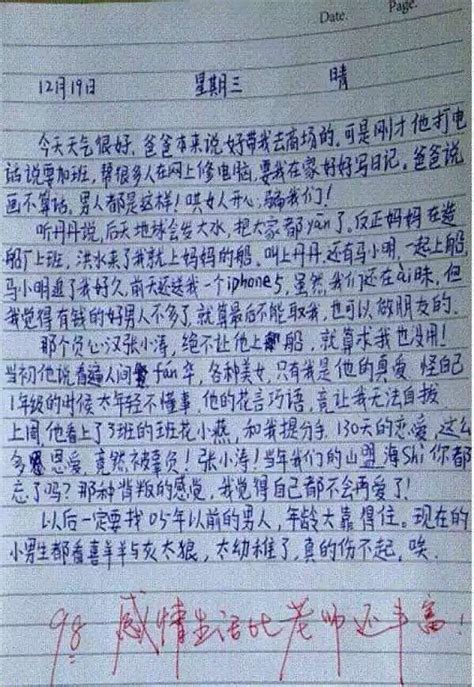 Date. Page.
12月19日 星期三 晴
今天天气很好,爸爸本来说好带我去商场的,可是刚才他打电
话说要加班,帮很多人在网上修电脑,要我在家好好写日记。爸爸说
画不算话,男人都是这样!哄女人开心,骗我们!
听丹丹说,后天地球会发大水,把大家都yān了。反正妈妈在造
船厂上班,洪水来了我就上妈妈的船,叫上丹丹,还有马小明,一起上船,
马小明追了我好久,前天还送我一个iphone5,虽然我们还在ài昧,但
我觉得有钱的好男人不多了,就算最后不能取我,也可以做朋友的。
那个负心汉张小涛,绝不让他上船,就算求我也没用!
当初他说看遍人间fán华,各种美女,只有我是他的真爱,怪自己
1年级的时候太年轻不懂事,他的花言巧语,竟让我无法自拔
上周,他看上了3班的班花小燕,和我提分手,130天的恋爱,这么
多恩爱,竟然被辜负!张小涛!当年我们的山盟海Shi你都
忘了吗?那种背叛的感觉,我觉得自己都不会再爱了!
以后一定要找05年以前的男人,年龄大靠得住。现在的
小男生都看喜羊羊与灰太狼,太幼稚了,真的伤不起,唉.
98 感情生活比老师还丰富!